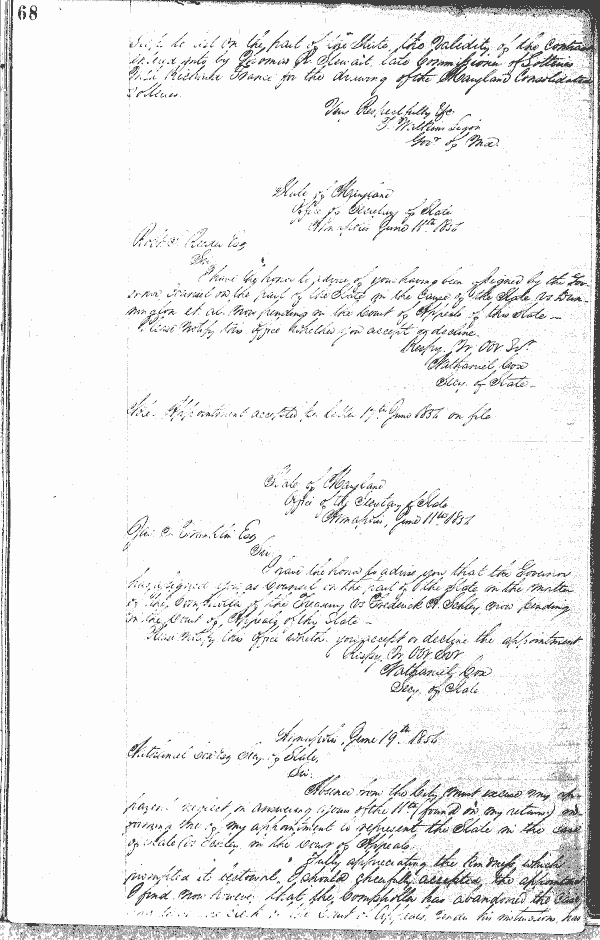 68
to act on the part of the State, the validity of the contract
entered into by Thomas R. Stewart, late Commissioner of Lotteries
with France for the drawing of the Maryland Consolidated
Lotteries.
Very Respectfully &c
T. Watkins Ligon
Gov. of Md.
State of Maryland
Office of Secretary of State
Annapolis June 11th 1856
Esq
Sir
I have the honor to advise of you having been assigned by the Gov-
ernor Counsel on the part of the State in the cause of the State vs
et al. now pending in the Court of Appeals of this State —
Please notify this office whether you accept or decline.
Respy. Yr. Obt. Svt.
Nathaniel Cox
Secy. of State —
Note. Appointment accepted per letter 17th June 1856 on file
State of Maryland
Office of the Secretary of State
Annapolis, June 11th 1856
Franklin Esq
Sir
I have the honor to advise you that the Governor
has assigned you as Counsel on the part of the State in the matter
of the Comptroller of the Treasury vs Frederick A. Schley now pending
in the Court of Appeals of this State —
Please notify this Office whether you accept or decline the appointment
Respy. Yr. Obt. Svt.
Nathaniel Cox
Secy. of State
Annapolis, June 19th 1856
Nathaniel Cox Esq Secy. of State,
Sir:
Absence from the City must excuse my ap-
parent neglect in answering yours of the 11th (found on my return) in-
forming me of my appointment to represent the State in the case
of State vs in the Court of Appeals.
Fully appreciating the kindness which
prompted its I should cheerfully accepted the appointment
I find now however that the Comptroller has abandoned the case
in the Court of Appeals, under his instructions, has